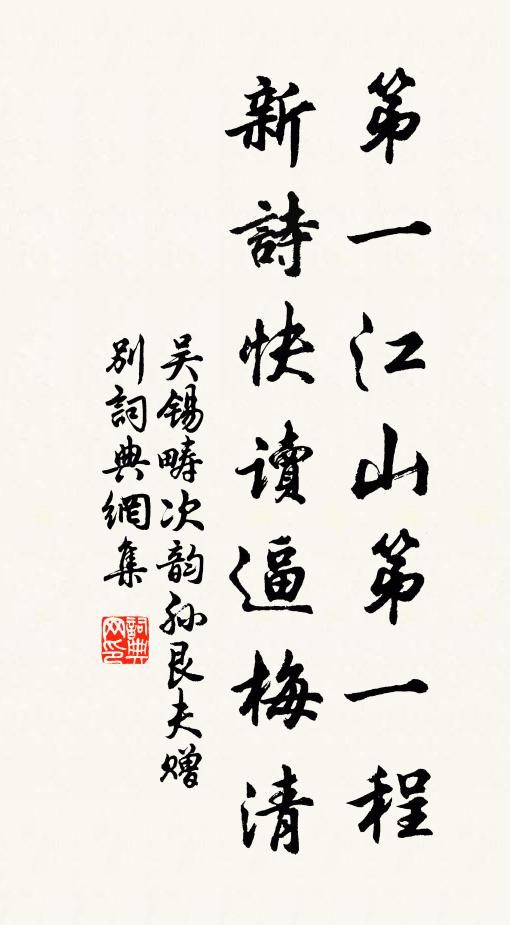 第一江山第一程
新詩快讀逼梅清
吴錫疇次韵孙艮夫赠
别詞典網集
詞典
网印